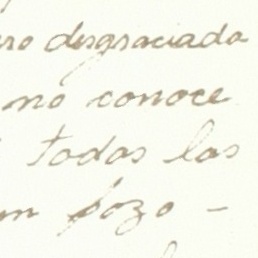 ero desgraciada
no conoce
todas las
un pozo -